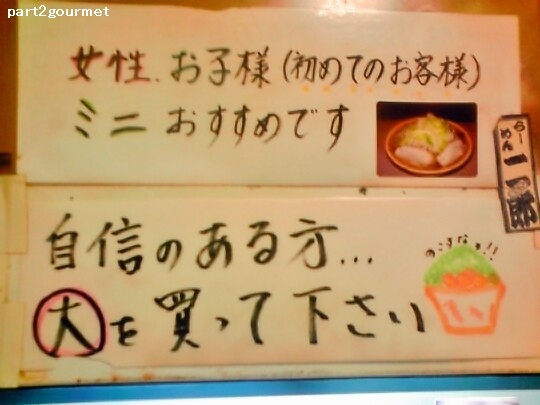 part2gourmet
女性、お子様(初めてのお客様)
ミニ おすすめです
らーめん 一一郎
自信のある方...
のこすなよ!!
大を買って下さい